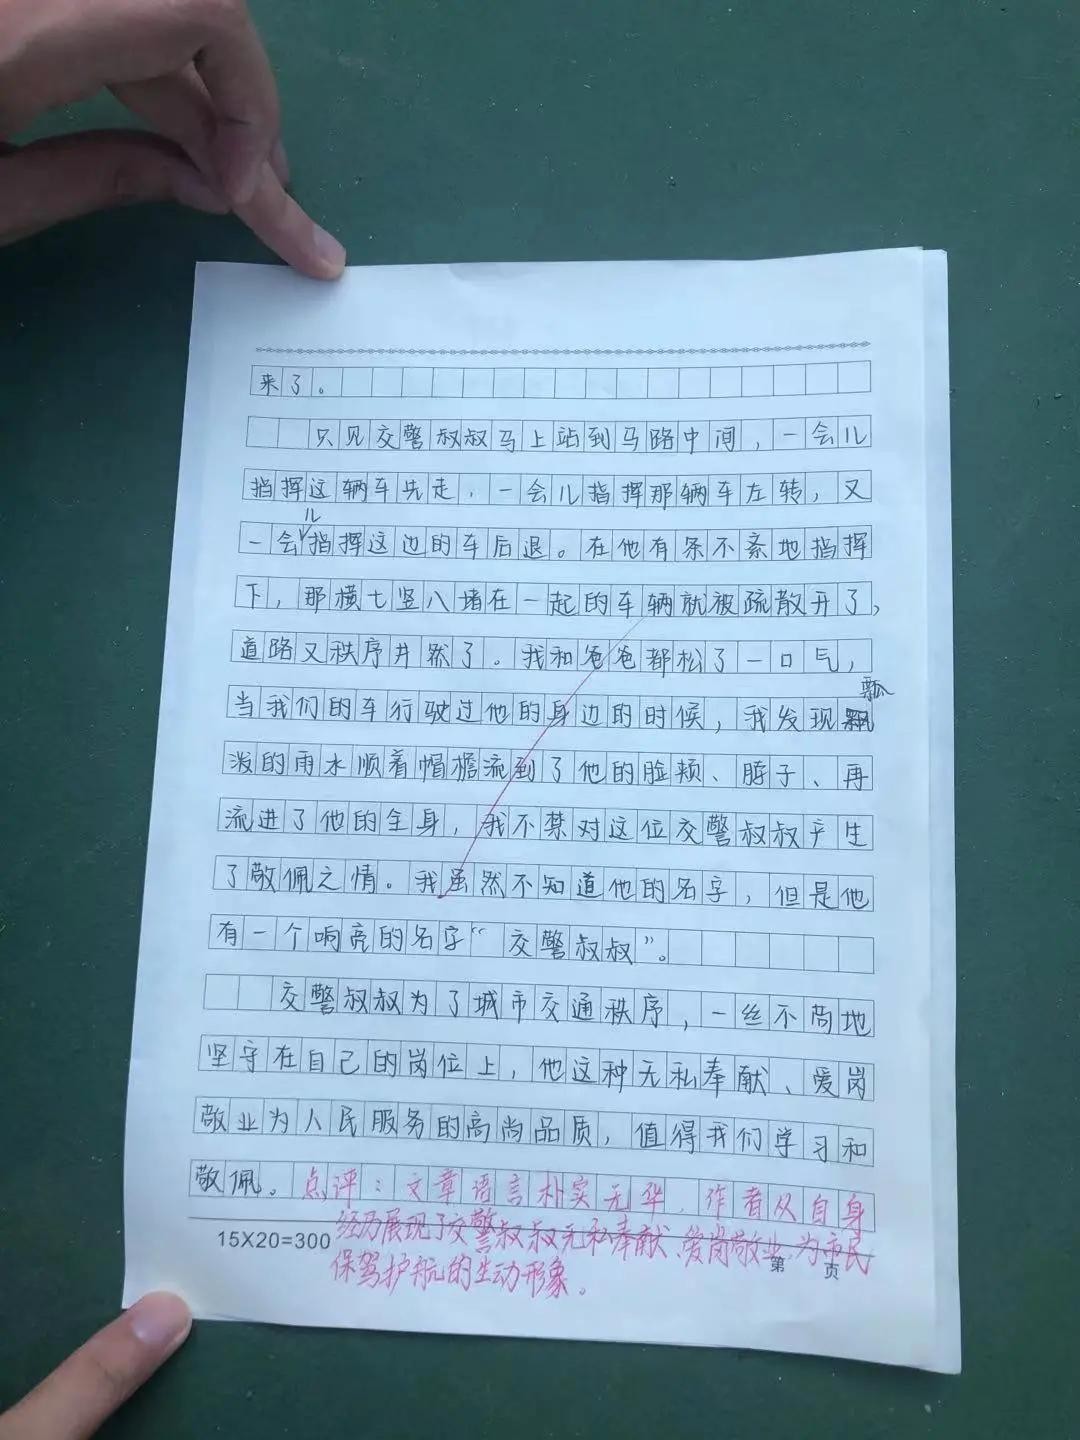 来了。
只见交警叔叔马上站到马路中间，一会儿
指挥这辆车先走，一会儿指挥那辆车左转，又
一会儿指挥这边的车后退。在他有条不紊地指挥
下，那横七竖八堵在一起的车辆就被疏散开了，
道路又秩序井然了。我和爸爸都松了一口气，
当我们的车行驶过他的身边的时候，我发现瓢
泼的雨水顺着帽檐流到了他的脸颊、脖子、再
流进了他的全身，我不禁对这位交警叔叔产生
了敬佩之情。我虽然不知道他的名字，但是他
有一个响亮的名字“交警叔叔”。
交警叔叔为了城市交通秩序，一丝不苟地
坚守在自己的岗位上，他这种无私奉献、爱岗
敬业为人民服务的高尚品质，值得我们学习和
敬佩。点评：文章语言朴实无华，作者从自身
经历展现了交警叔叔无私奉献、爱岗敬业，为市民
保驾护航的生动形象。
15X20=300 第 页